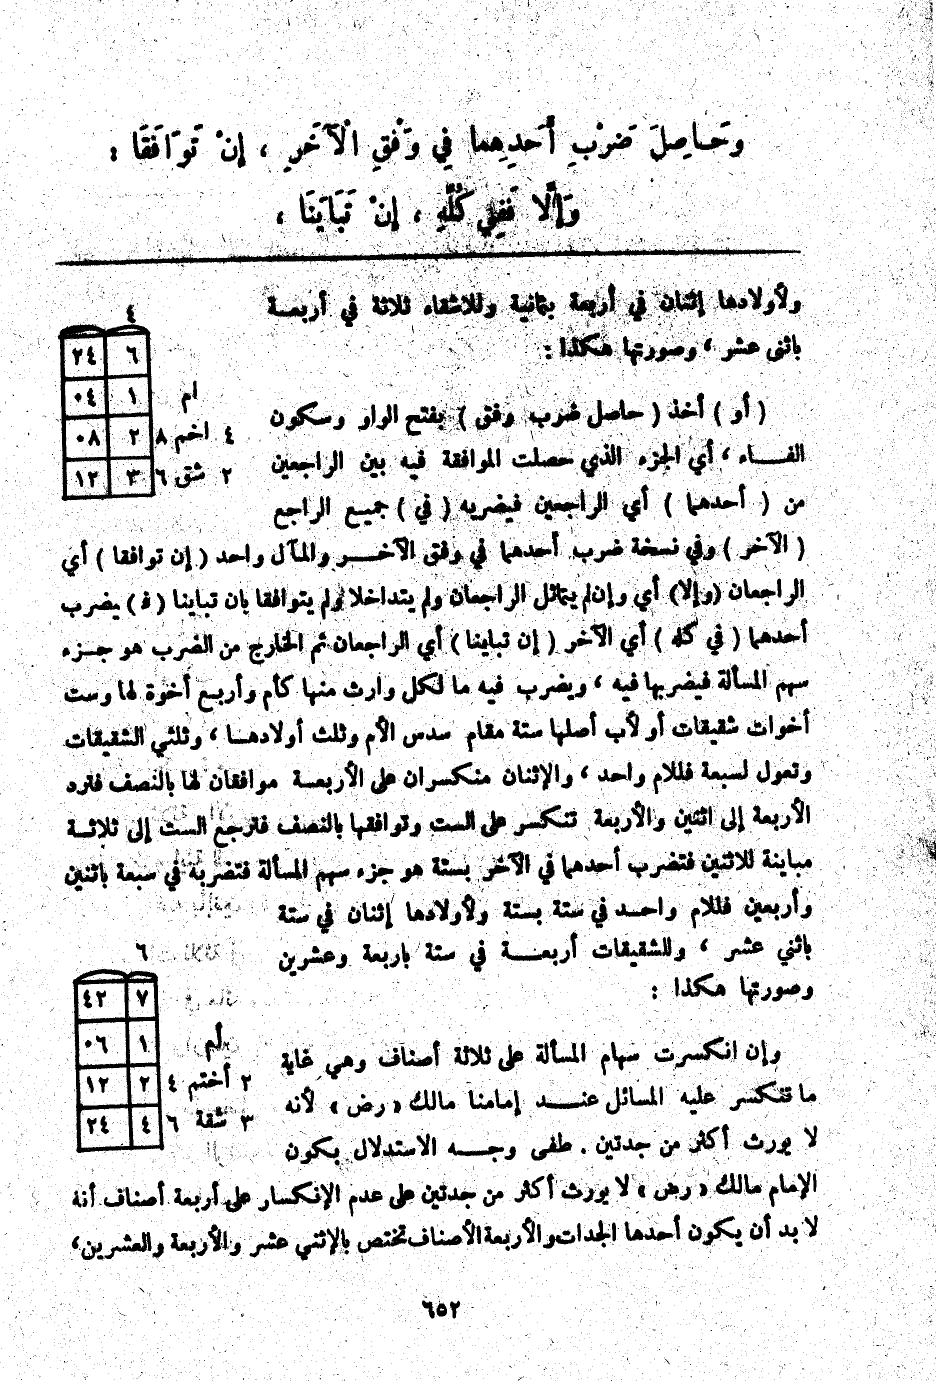 وَحَاصِلَ ضَرْبِ أَحَدِهِما فِي وَفْقِ الْآخَرِ ، إنْ تَوَافَقَا :
وَإِلَّا فَفِي كُلِّهِ ، إنْ تَبَايَنَا ،
ولأولادها إثنان في أربعة بثمانية وللاشقاء ثلاثة في أربعــة
باثنى عشر ، وصورتها هكذا :
٤
٦ ٢٤
ام ١ ٠٤
٤ اخم ٨ ٢ ٠٨
٢ شق ٦ ٣ ١٢
( أو ) أخذ ( حاصل ضرب وفق ) بفتح الواو وسكون
الفــاء ، أي الجزء الذي حصلت الموافقة فيه بين الراجعين
من ( أحدهما ) أي الراجعين فيضربه ( في ) جميع الراجع
( الآخر ) وفي نسخة ضرب أحدهما في وفق الآخــر والمآل واحد ( إن توافقا ) أي
الراجعان (وإلا) أي وإن لم يتماثل الراجعان ولم يتداخلا ولم يتوافقا بان تباينا ( فـ ) يضرب
أحدهما ( في كله ) أي الآخر ( إن تباينا ) أي الراجعان ثم الخارج من الضرب هو جـزء
سهم المسألة فيضربها فيه ، ويضرب فيه ما لكل وارث منها كأم وأربع أخوة لها وست
أخوات شقيقات أو لأب أصلها ستة مقام سدس الأم وثلث أولادهــا ، وثلثي الشقيقات
وتعول لسبعة فللام واحد ، والإثنان منكسران على الأربعــة موافقان لها بالنصف فترد
الأربعة إلى اثنين والأربعة تنكسر على الست وتوافقها بالنصف فترجع الست إلى ثلاثــة
مباينة للاثنين فتضرب أحدهما في الآخر بستة هو جزء سهم المسألة فتضربه في سبعة باثنين
وأربعين فللام واحــد في ستة بستة ولأولادها إثنان في ستة
باثني عشر ، وللشقيقات أربعــة في ستة باربعة وعشرين
وصورتها هكذا :
٦
٧ ٤٢
أم ١ ٠٦
٢ أختم ٤ ٢ ١٢
٣ شقة ٦ ٤ ٢٤
وإن انكسرت سهام المسألة على ثلاثة أصناف وهي غاية
ما تنكسر عليه المسائل عنــد إمامنا مالك « رض » لأنه
لا يورث أكثر من جدتين . طفى وجــه الاستدلال بكون
الإمام مالك « رض » لا يورث أكثر من جدتين على عدم الإنكسار على أربعة أصناف أنه
لا بد أن يكون أحدها الجدات والأربعة الأصناف تختص بالإثني عشر والأربعة والعشرين،
٦٥٢